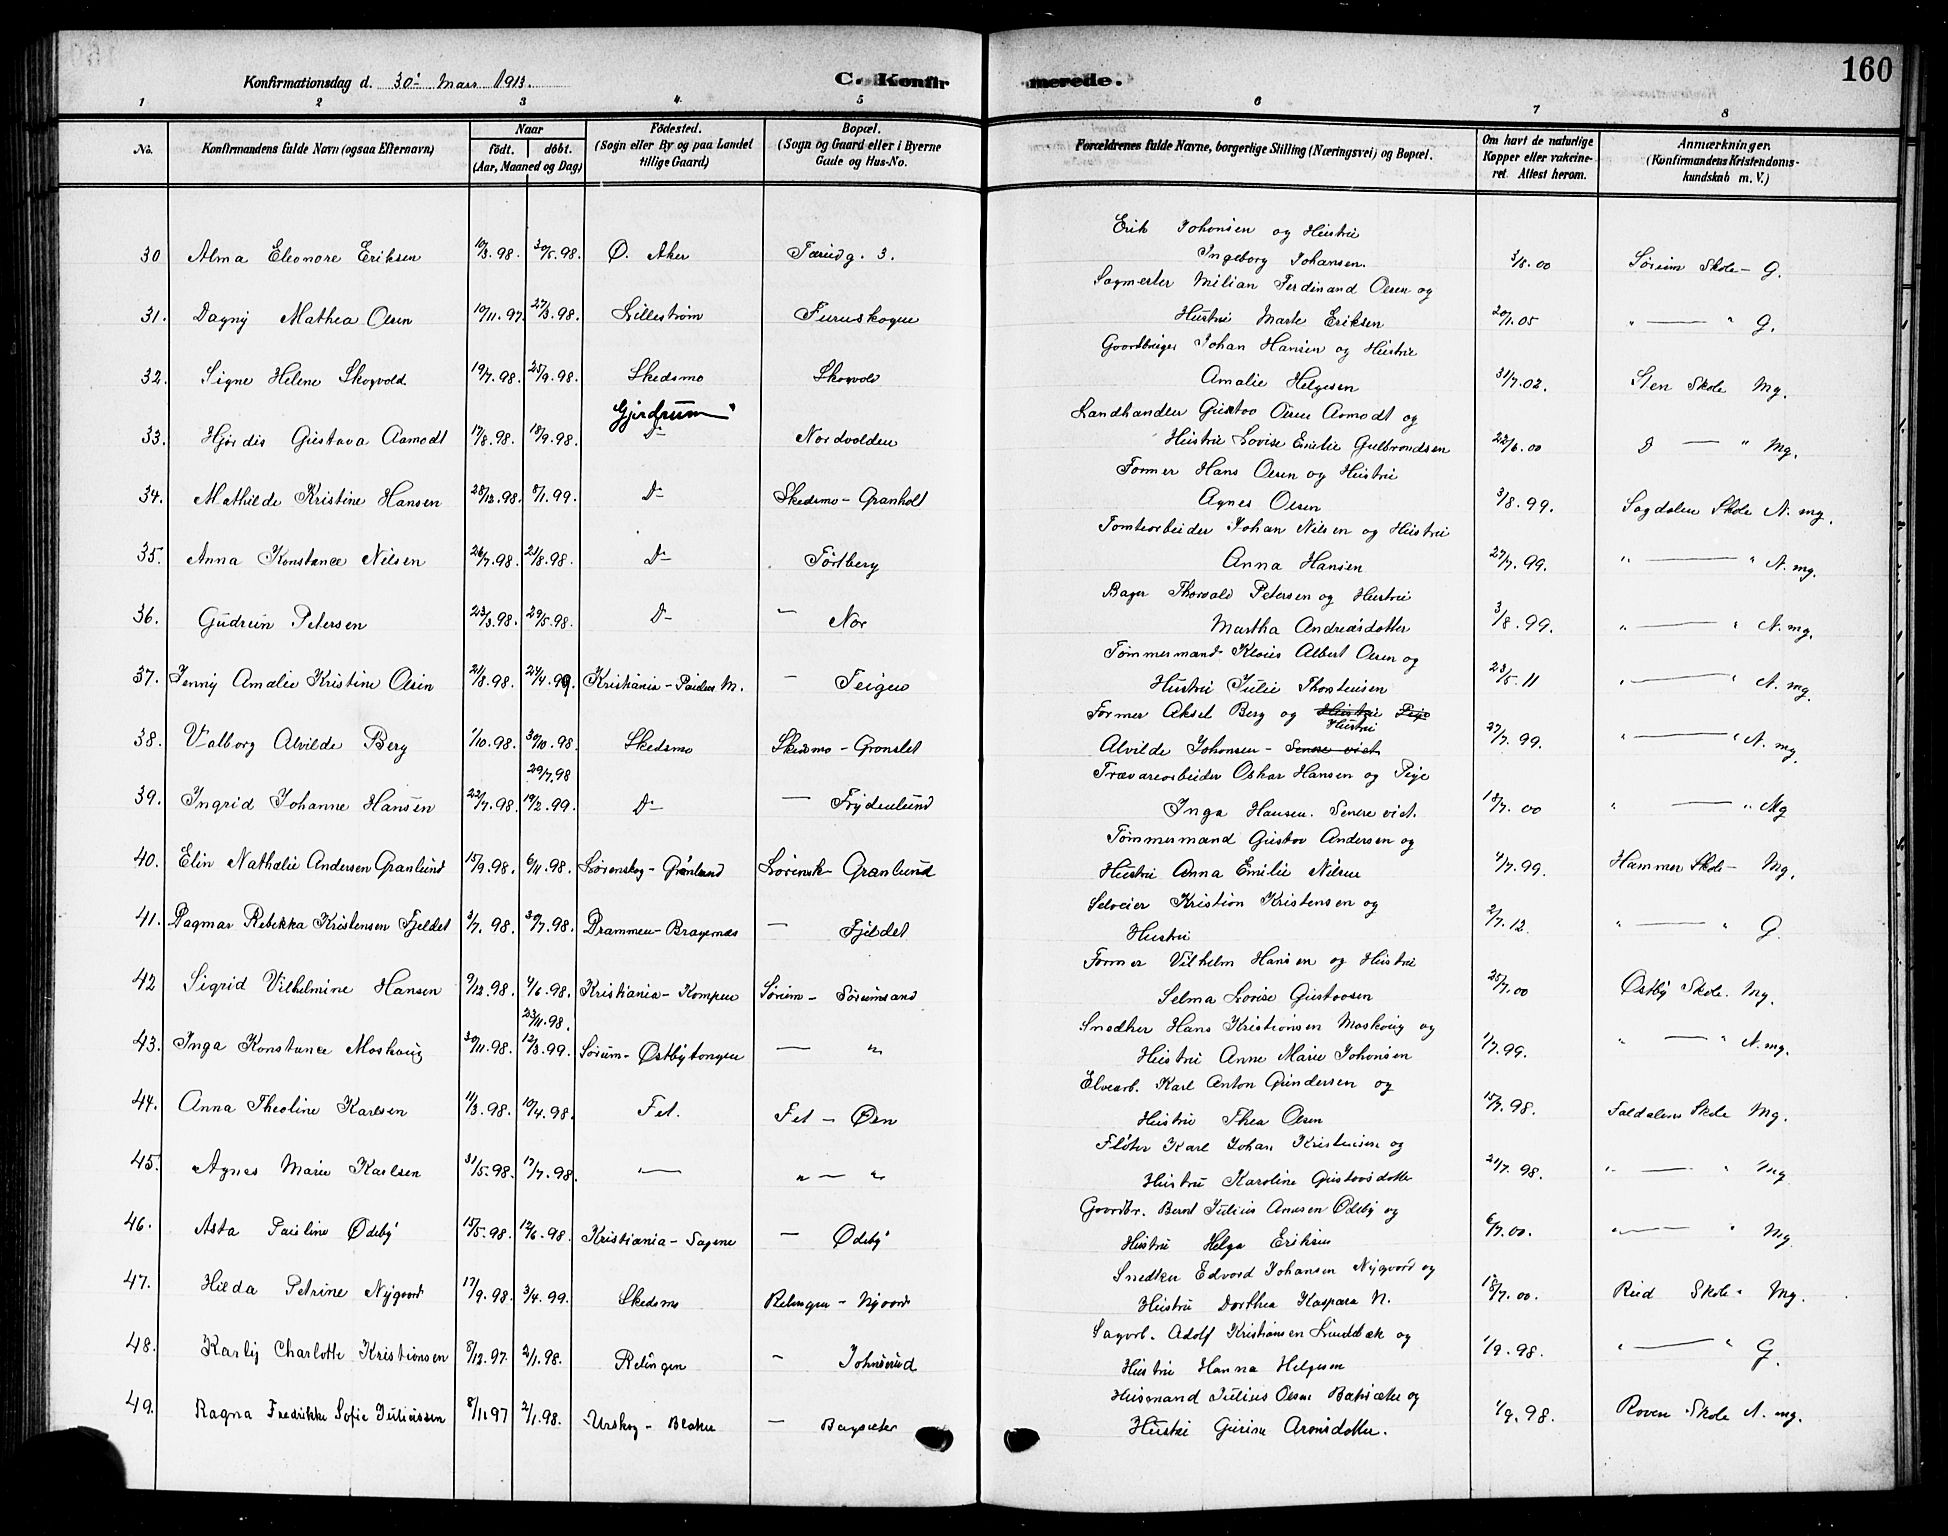 160
Konfirmationsdag d. 30' Mars 1913.
C. Konfirmerede.
1 2 3 4. 5 6 7 8
No. Konfirmandens fulde Navn (ogsaa Efternavn) Naar født. døbt. (Aar, Maaned og Dag) Fødested. (Sogn eller By og paa Landet tillige Gaard) Bopæl. (Sogn og Gaard eller i Byerne Gade og Hus-No. Forældrenes fulde Navne, borgerlige Stilling (Næringsvei) og Bopæl. Om havt de naturlige Kopper eller vakcineret. Attest herom. Anmærkninger. (Konfirmandens Kristendomskundskab m. V.)
30 Alma Eleonore Eriksen 10/3.98. 30/5.98. Ø. Aker 3. Erik Johansen og Hustru Ingeborg Johansen. 3/8.00 Sørum Skole - G.
31. Dagny Mathea Olsen 10/11.97. 27/3.98. Lillestrøm Furuskogen Sagmester Milian Ferdinand Olsen og Hustru Marte Eriksen 20/1.05 " — " G.
32. Signe Helene Skogvold 19/7.98. 25/9.98. Skedsmo Skogvold Gaardbruger Johan Hansen og Hustru Amalie Helgesen 31/7.02. Sten Skole Mg.
33. Hjørdis Gustava Aamodt 17/8.98. 18/9.98. Gjerdrum Do Nordvolden Landhandler Gustav Olsen Aamodt og Hustru Lovise Emilie Gulbrandsen 22/6.00 " — " Mg.
34. Mathilde Kristine Hansen 28/12.98. 8/1.99. Do Skedsmo - Granholt Former Hans Olsen og Hustru Agnes Olsen 3/8.99. Sagdalen Skole N. mg.
35. Anna Konstance Nilsen 26/7.98. 21/8.98. Do Törtberg Tomtearbeider Johan Nilsen og Hustru Anna Hansen 27/7.99. " — " N. mg.
36. Gudrun Petersen 23/3.98. 29/5.98. Do — Nor Bager Thorvald Petersen og Hustru Martha Andreasdatter 3/8.99. " — " N. mg.
37. Jenny Amalie Kristine Olsen 21/8.98. 24/4.99. Kristiania - Paulus M. — Teigen Tømmermand Klaus Albert Olsen og Hustru Julie Thorstensen 23/5.11 " — " N. mg.
38. Valborg Alvilde Berg 1/10.98. 30/10.98. Skedsmo Skedsmo - Gronslet Former Aksel Berg og Hustru Pige Hustru Alvilde Johansen - Senere viet 27/7.99. " — " N. mg.
39. Ingrid Johanne Hansen 22/7.98. 29/7.98 19/2.99. Do — Frydenlund Trævarearbeider Oskar Hansen og Pige Inga Hansen. Senere viet. 18/7.00 " — " Mg
40. Elin Nathalie Andersen Granlund 15/9.98. 6/11.98. Lørenskog - Grønlund Lørensk - Granlund Tømmermand Gustav Andersen og Hustru Anna Emilie Nilsen 4/7.99. Hammer Skole - Mg.
41. Dagmar Rebekka Kristensen Fjeldet 3/7.98. 30/7.98. Drammen - Bragernæs — Fjeldet Selveier Kristian Kristensen og Hustru 2/7.12. " — " G.
42 Sigrid Vilhelmine Hansen 9/12.98. 4/6.98. Kristiania - Kampen Sørum - Sørumsand Former Vilhelm Hansen og Hustru Selma Lovise Gustavsen 25/7.00 Østby Skole. Mg.
43. Inga Konstance Moshoug 30/11.98. 23/11.98. 12/3.99. Sørum - Østbytangen — " Snedker Hans Kristiansen Moshoug og Hustru Anne Marie Johansen 1/7.99. " — " N. mg.
44. Anna Theoline Karlsen 11/3.98. 10/4.98. Fet. Fet - Øen Elvearb. Karl Anton Gundersen og Hustru Thea Olsen 15/7.98. Faldalens Skole Mg.
45. Agnes Marie Karlsen 31/5.98. 17/7.98. "— " — " Fløter Karl Johan Kristensen og Hustru Karoline Gustavsdatter 21/7.98. " — " Mg
46. Asta Pauline Ødeby 15/5.98. 12/6.98. Kristiania - Sagene — Ødeby Gaardbr. Bernt Julius Arnesen Ødeby og Hustru Helga Eriksen 6/7.00. " — " Mg.
47. Hilda Petrine Nygaard 17/9.98. 3/4.99. Skedsmo Relingen - Nygaard Snedker Edvard Johansen Nygaard og Hustru Dorthea Kaspara N. 18/7.00. Rud Skole - Mg.
48. Karly Charlotte Kristiansen 8/12.97. 2/1.98. Relingen — Johnsrud Sagarb. Adolf Kristiansen Lundbæk og Hustru Hanna Helgesen 1/9.98. " — " G.
49. Ragna Fredrikke Sofie Juliussen 8/11.97 2/1.98. Urskog - Blaker — Husmand Julius Olsen og Hustru Gurine Aronsdatter. 1/9.98. Roven Skole N. mg.